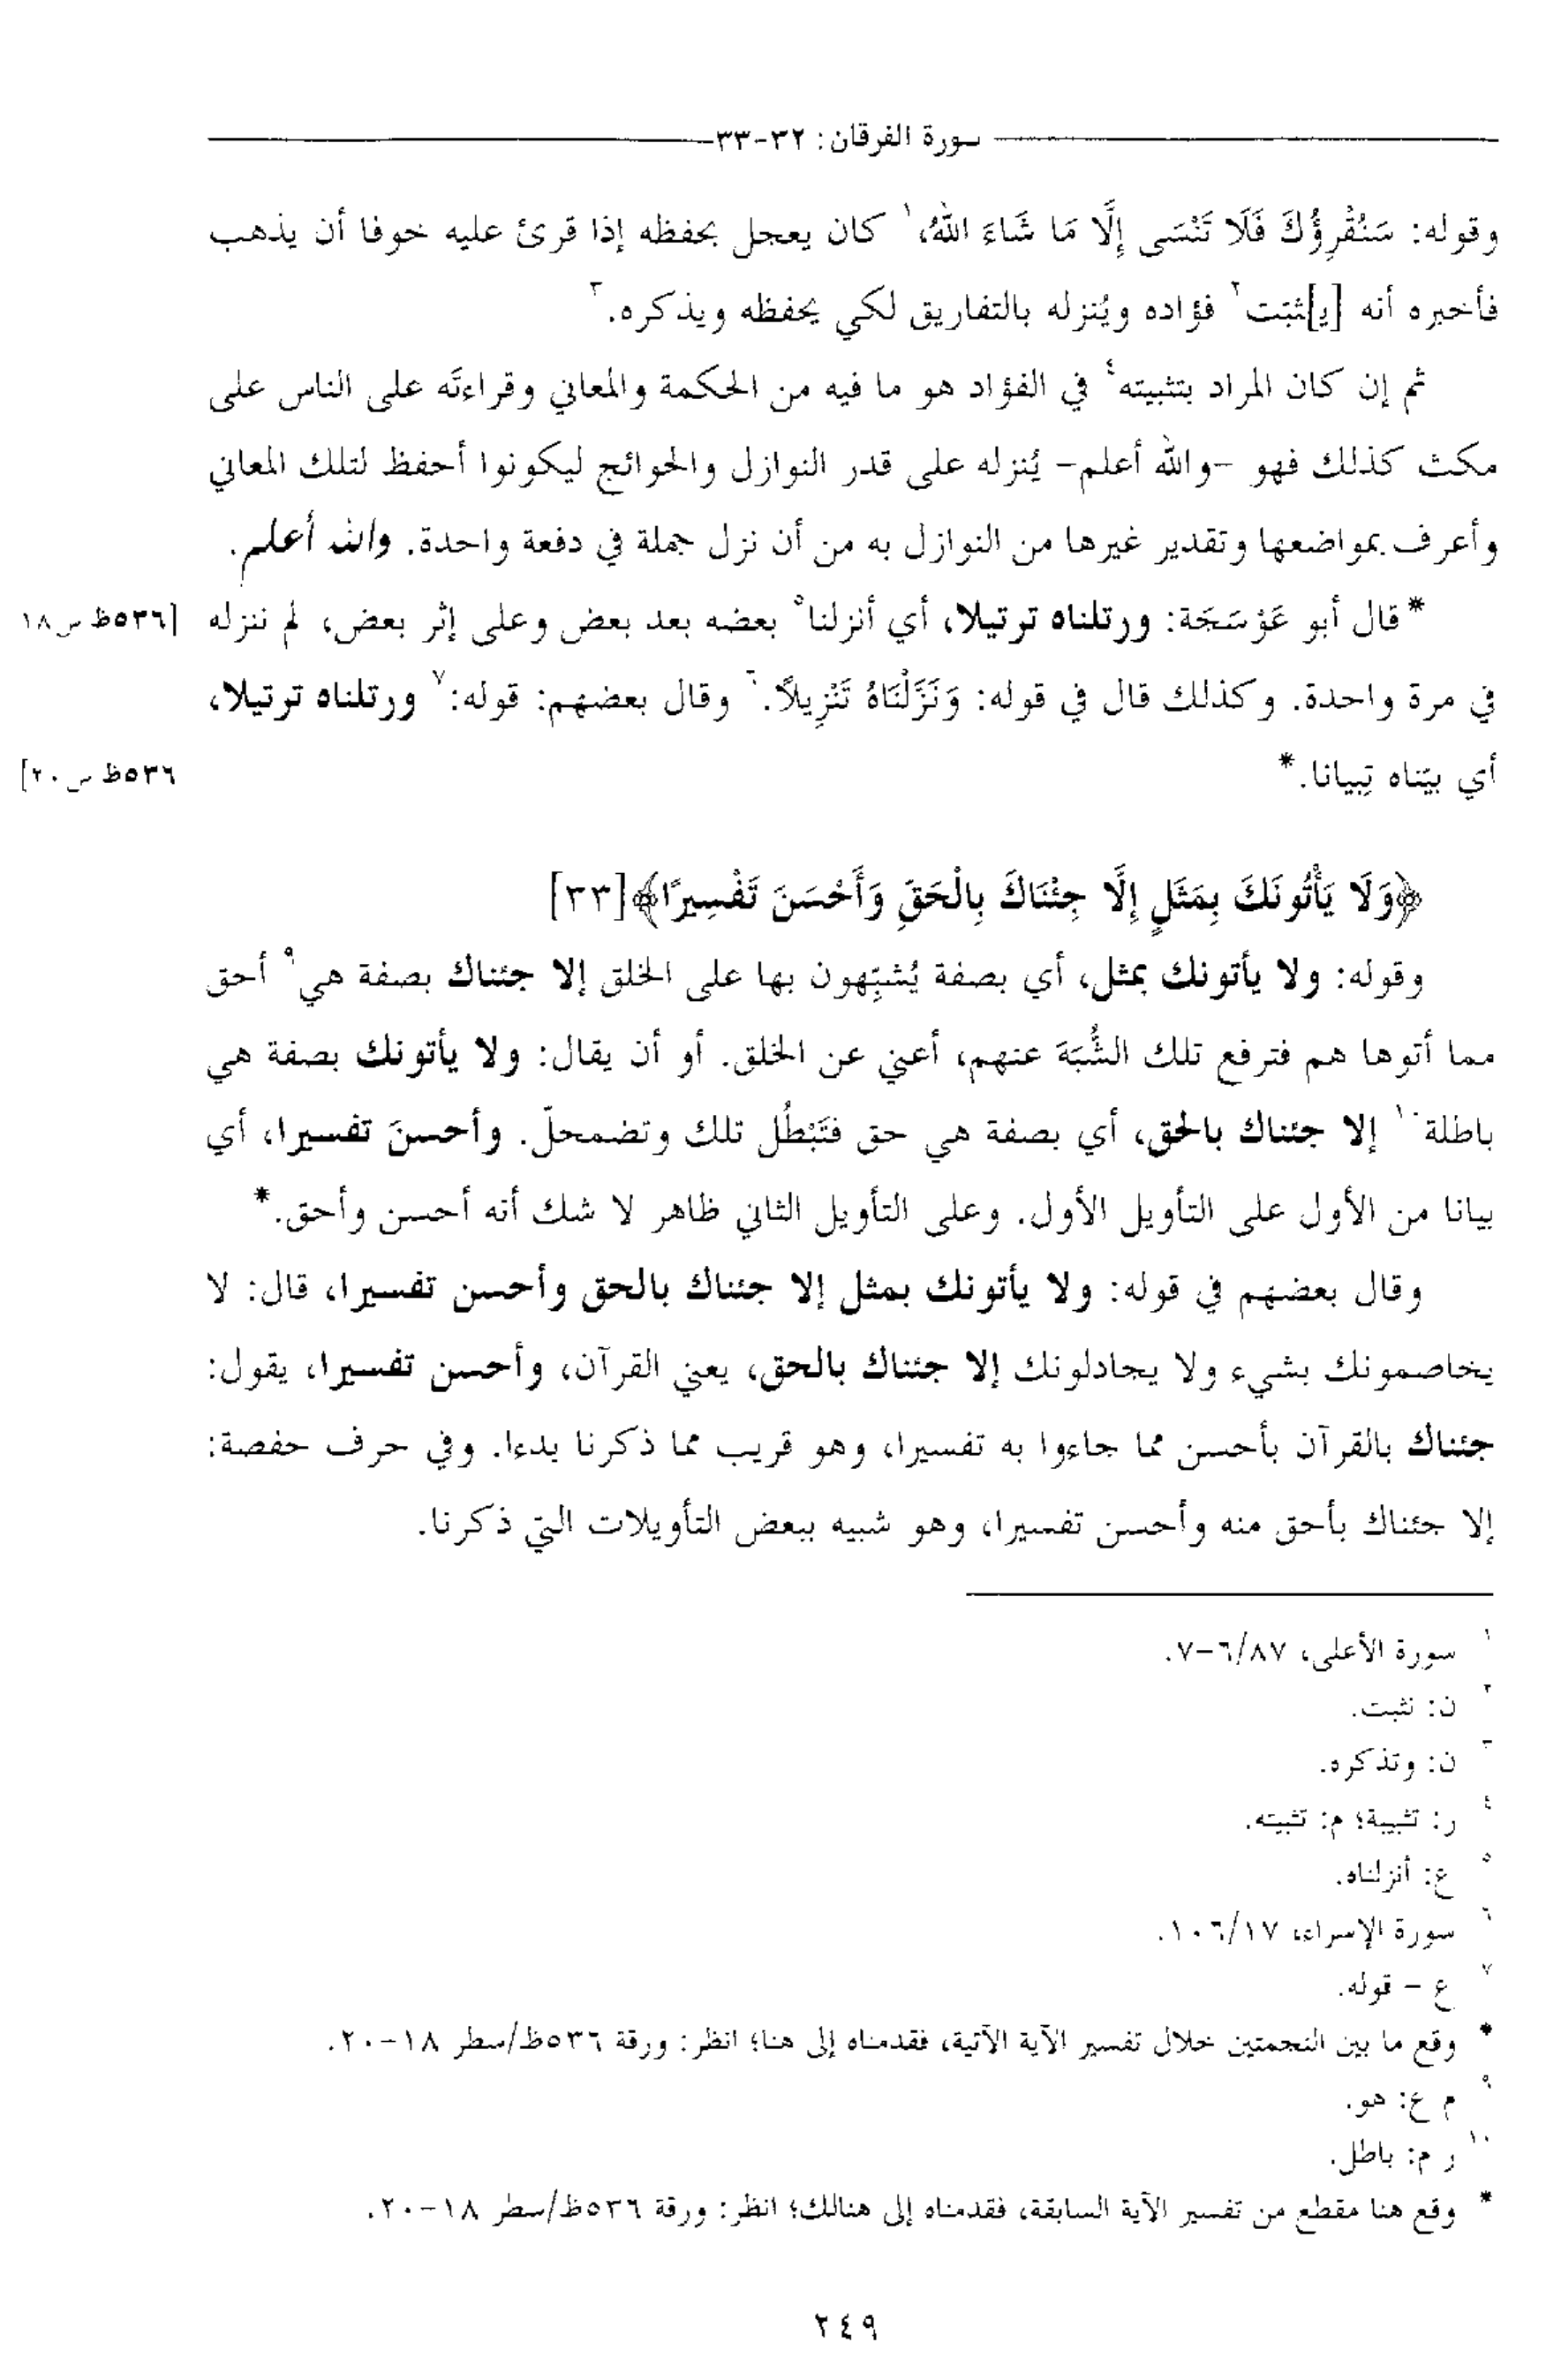 سورة الفرقان: ٣٢-٣٣
وقوله: سَنُقْرِؤُكَ فَلَا تَنْسَى إِلَّا مَا شَاءَ اللهُ،١ كان يعجل بحفظه إذا قرئ عليه خوفا أن يذهب
فأخبره أنه [ي]ثبّت٢ فؤاده ويُنزله بالتفاريق لكي يحفظه ويذكره.٣
ثم إن كان المراد بتثبيته٤ في الفؤاد هو ما فيه من الحكمة والمعاني وقراءتَه على الناس على
مكث كذلك فهو -والله أعلم- يُنزله على قدر النوازل والحوائج ليكونوا أحفظ لتلك المعاني
وأعرف بمواضعها وتقدير غيرها من النوازل به من أن نزل جملة في دفعة واحدة. والله أعلم.
*قال أبو عَوْسَجَة: ورتلناه ترتيلا، أي أنزلنا٥ بعضه بعد بعض وعلى إثر بعض، لم ننزله [٥٣٦ظ س١٨
في مرة واحدة. وكذلك قال في قوله: وَنَزَّلْنَاهُ تَنْزِيلاً.٦ وقال بعضهم: قوله:٧ ورتلناه ترتيلا،
أي بيّناه تِبيانا.* ٥٣٦ظ س٢٠]
﴿وَلَا يَأْتُونَكَ بِمَثَلٍ إِلَّا جِئْنَاكَ بِالْحَقِّ وَأَحْسَنَ تَفْسِيرًا﴾[٣٣]
وقوله: ولا يأتونك بمثل، أي بصفة يُشبِّهون بها على الخلق إلا جئناك بصفة هي٩ أحق
مما أتوها هم فترفع تلك الشُّبَهَ عنهم، أعني عن الخلق. أو أن يقال: ولا يأتونك بصفة هي
باطلة١٠ إلا جئناك بالحق، أي بصفة هي حق فتَبْطُل تلك وتضمحلّ. وأحسنَ تفسيرا، أي
بيانا من الأول على التأويل الأول. وعلى التأويل الثاني ظاهر لا شك أنه أحسن وأحق.*
وقال بعضهم في قوله: ولا يأتونك بمثل إلا جئناك بالحق وأحسن تفسيرا، قال: لا
يخاصمونك بشيء ولا يجادلونك إلا جئناك بالحق، يعني القرآن، وأحسن تفسيرا، يقول:
جئناك بالقرآن بأحسن مما جاءوا به تفسيرا، وهو قريب مما ذكرنا بدءا. وفي حرف حفصة:
إلا جئناك بأحق منه وأحسن تفسيرا، وهو شبيه ببعض التأويلات التي ذكرنا.
١ سورة الأعلى، ٦/٨٧-٧.
٢ ن: نثبت.
٣ ن: وتذكره.
٤ ر: تثبيبة؛ م: تثبيته.
٥ ع: أنزلناه.
٦ سورة الإسراء، ١٠٦/١٧.
٧ ع - قوله.
* وقع ما بين النجمتين خلال تفسير الآية الآتية، فقدمناه إلى هنا؛ انظر: ورقة ٥٣٦ظ/سطر ١٨-٢٠.
٩ م ع: هو.
١٠ ر م: باطل.
* وقع هنا مقطع من تفسير الآية السابقة، فقدمناه إلى هنالك؛ انظر: ورقة ٥٣٦ظ/سطر ١٨-٢٠.
٢٤٩